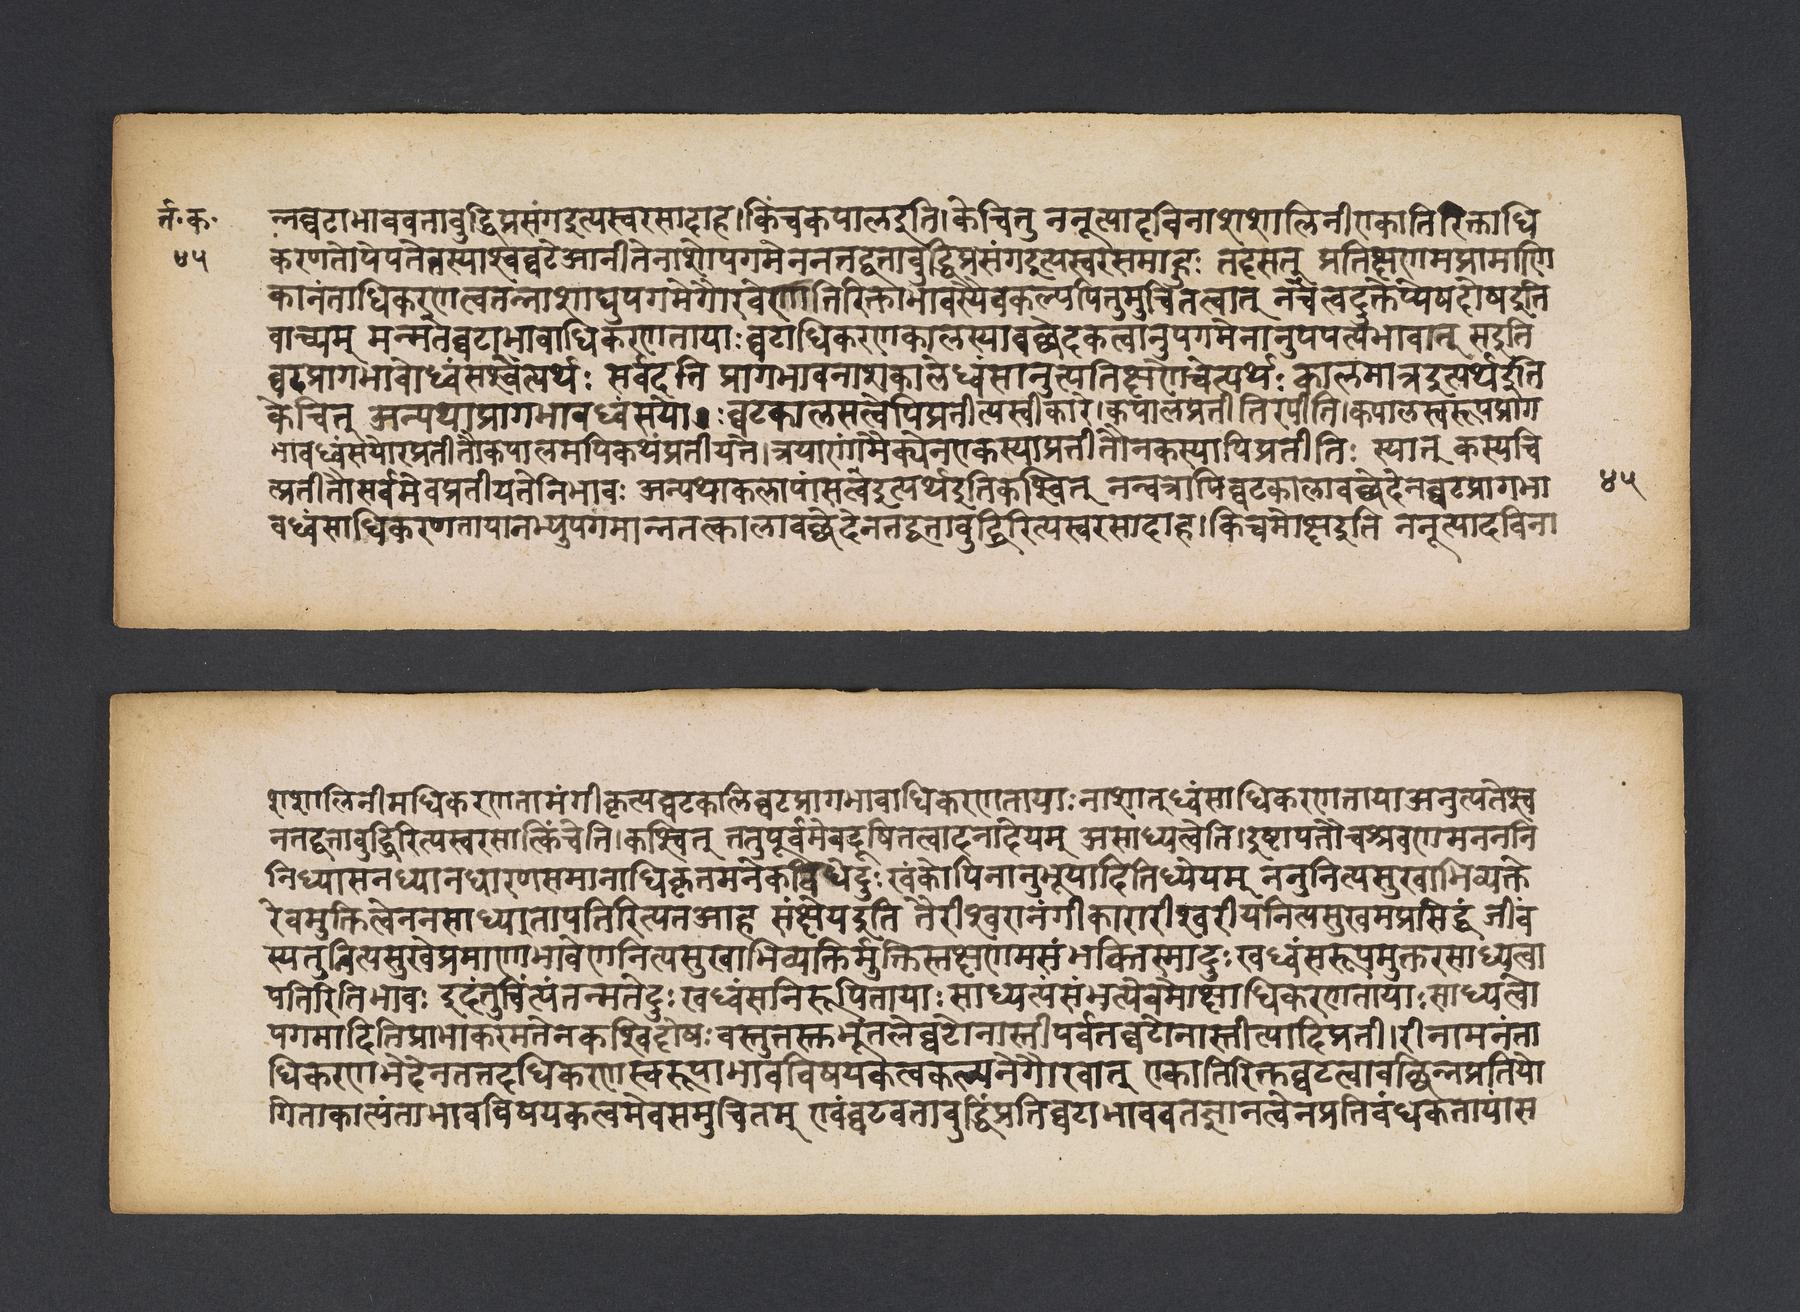 र्न॰क॰
४५
न्नघटाभाववत्ताबुद्धिप्रसंगइत्यस्वरसादाह।किंचकपालइति।केचित्तु ननूत्पादविनाशशालिनीएकातिरिक्ताधि
करणतोपेयतेतस्याश्चघटेआनीतेनाशोपगमेनतद्वत्ताबुद्धिप्रसंगइत्यस्वरसमाहुः तदसत् प्रतिक्षणमप्रामाणि
कानंताधिकरणत्वतन्नाशाद्युपगमेगौरवेणातिरिक्ताभावस्यैवकल्पयितुमुचितत्वात् नचैत्वदुक्तेप्येषदोषइति
वाच्यम् मन्मतेघटाभावाधिकरणतायाःघटाधिकरणकालस्यावच्छेदकत्वानुपगमेनानुपपत्त्यभावात् सइति
घटप्रागभावोध्वंसश्चेत्यर्थः सर्वदेति प्रागभावनाशकालेध्वंसानुत्पतिक्षणेचेत्यर्थः कालमात्रइत्यर्थइति
केचित् अन्यथाप्रागभावध्वंसयोःघटकालसत्वेपिप्रतीत्यस्वीकारे।कपालप्रतीतिरपीति।कपालस्वरूपप्राग
भावध्वंसयोरप्रतीतौकपालमपिकथंप्रतीयेत।त्रयाणांमैक्येनएकस्याप्रतीतौनकस्यापिप्रतीतिः स्यात् कस्यचि
त्प्रतीतौसर्वमेवप्रतीयतेनिभावः अन्यथाकलापांसत्वेइत्यर्थइतिकश्चित् नन्वत्रापिघटकालावच्छेदेनघटप्रागभा
४५
वध्वंसाधिकरणतायानभ्युपगमान्नतत्कालावच्छेदेनतद्वत्ताबुद्धिरित्यस्वरसादाह।किंचमोक्षइति ननूत्पादविना
शशालिनीमधिकरणतामंगीकृत्यघटकालेघटप्रागभावाधिकरणतायाःनाशात्ध्वंसाधिकरणतायाअनुत्पतेश्च
नतद्वत्ताबुद्धिरित्यस्वरसात्किंचेति।कश्चित् तत्तुपूर्वमेवदूषितत्वादनादेयम् असाध्यत्वेति।इष्टापत्तौचश्रवणमनननि
निध्यासनध्यानधारणसमानाधिकृतमनेकविधंदुःखंकोपिनानुभूयादितिध्येयम् ननुनित्यसुखाभिव्यक्ते
रेवमुक्तित्वेननसाध्यातापतिरित्यतआह संक्षेपइति तैरीश्वरानंगीकारारीश्वरीयंनित्यसुखमप्रसिद्धं जीव
स्यतुनित्यसुखेप्रमाणाभावेणनित्यसुखाभिव्यक्तिर्मुक्तिस्तक्षणमसंभवितस्मादुःखध्वंसरूपमुक्तरसाध्यत्वा
पतिरितिभावः इदंतुचिंत्यंतन्मतेदुःखध्वंसनिरूपितायाःसाध्यत्यसंभत्येवमोक्षाधिकरणतायाःसाध्यत्वो
पगमादितिप्राभाकरमतेनकश्चिद्दोषःवस्तुतस्तभूतलेघटोनास्तीपर्वतेघटोनास्तीत्यादिप्रती।रीनामनंता
धिकरणभेदेनतत्तदधिकरणस्वरूपाभावविषयकत्वकल्पनेगौरवात् एकातिरिक्तघटत्वावच्छिन्नप्रतियो
गिताकात्यंताभावविषयकत्वमेवसमुचितम् एवंघटवत्ताबुद्धिंप्रतिघटाभाववतज्ञानत्वेनप्रतिबंधकतायांस